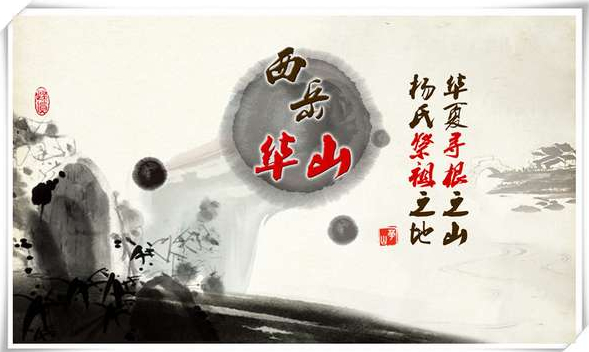 西岳
华山
华夏寻根之山
杨氏祭祖之地